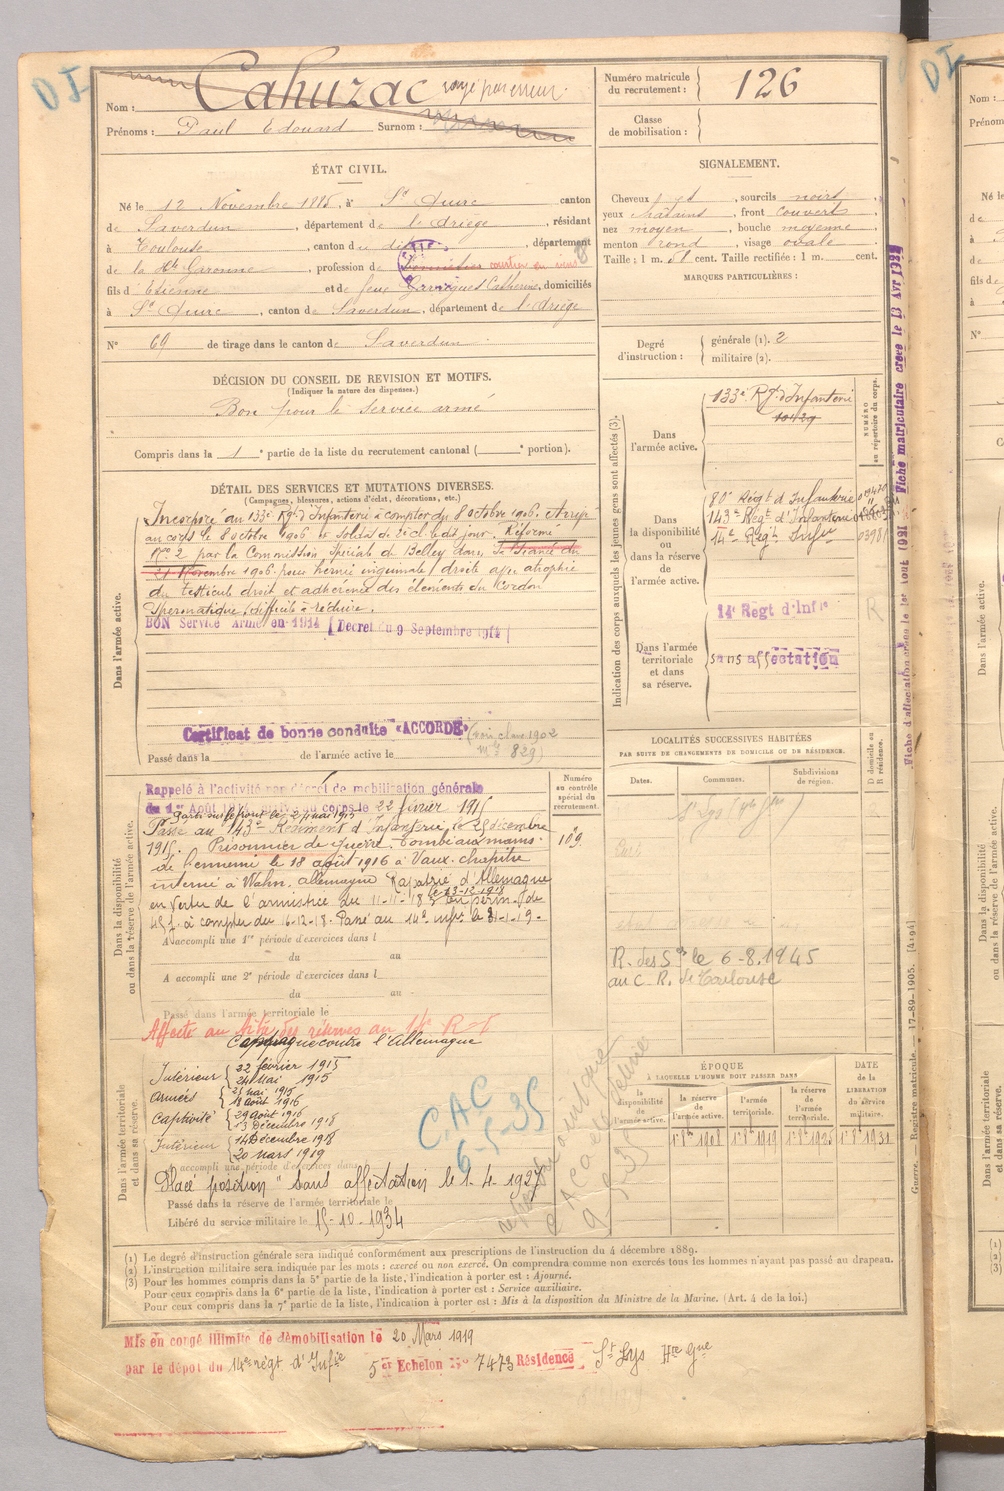 Nom : Cahuzac rayé par erreur.
Prénoms : Paul Edouard Surnom :
Numéro matricule du recrutement : 126
Classe de mobilisation :
ÉTAT CIVIL.
Né le 12 Novembre 1885, à St Quirc canton
de Saverdun, département de l'Ariège, résidant
à Toulouse, canton de dit, département
de la Hte Garonne, profession de courtier en vins
fils d'Etienne et de feue Catherine, domiciliés
à St Quirc, canton de Saverdun, département de l'Ariège
N° 69 de tirage dans le canton de Saverdun
DÉCISION DU CONSEIL DE REVISION ET MOTIFS.
(Indiquer la nature des dispenses.)
Bon pour le service armé
Compris dans la 1e partie de la liste du recrutement cantonal ( e portion).
SIGNALEMENT.
Cheveux , sourcils noirs
yeux châtains, front couvert
nez moyen, bouche moyenne
menton rond, visage ovale
Taille : 1 m. cent. Taille rectifiée : 1 m. cent.
MARQUES PARTICULIÈRES :
Degré d'instruction : générale (1). 2
militaire (2).
DÉTAIL DES SERVICES ET MUTATIONS DIVERSES.
(Campagnes, blessures, actions d'éclat, décorations, etc.)
Dans l'armée active.
Incorporé au 133e Rgt d'Infanterie à compter du 8 octobre 1906. Arrivé
au corps le 8 octobre 1906 et soldat de 2e cl. ledit jour. Réformé
N° 2 par la Commission Spéciale de Belley dans sa séance du
21 Novembre 1906 pour hernie inguinale droite avec atrophie
du testicule droit et adhérence des éléments du cordon
spermatique, difficile à réduire.
BON Service Armé en 1914 [Décret du 9 Septembre 1914]
Certificat de bonne conduite «ACCORDÉ»
(voir classe 1902
n° 829)
Passé dans la de l'armée active le
Indication des corps auxquels les jeunes gens sont affectés (3).
NUMÉRO au répertoire du corps.
Dans l'armée active.
133e Rgt d'Infanterie
Dans la disponibilité ou dans la réserve de l'armée active.
80e Régt d'Infanterie
143e Régt d'Infanterie
14e Régt Infie
14e Regt d'Infie
Dans l'armée territoriale et dans sa réserve.
sans affectation
Fiche matriculaire créée le 13 Avr 1921
Fiche d'affectation créée le 1er Aout 1921
Dans la disponibilité ou dans la réserve de l'armée active.
Numéro au contrôle spécial du recrutement.
109
Rappelé à l'activité par décret de mobilisation générale
du 1er Août 1914, arrivé au corps le 22 février 1915
Parti sur le front le 24 mai 1915
Passé au 143e Régiment d'Infanterie le 25 décembre
1915. Prisonnier de Guerre. Tombé aux mains
de l'ennemi le 18 août 1916 à Vaux-chapitre
interné à Wahn, allemagne Rapatrié d'Allemagne
le 13-12-1918
en vertu de l'armistice du 11-11-18 en perm. de
45 j. à compter du 16-12-18. Passé au 14e infie le 31-1-19-
A accompli une 1re période d'exercices dans l
du au
A accompli une 2e période d'exercices dans l
du au
Passé dans l'armée territoriale le
LOCALITÉS SUCCESSIVES HABITÉES
PAR SUITE DE CHANGEMENTS DE DOMICILE OU DE RÉSIDENCE.
Dates. Communes. Subdivisions de région. D domicile ou R résidence.
R. des Ses le 6-8.1945
au C. R. de Toulouse
Campagne contre l'Allemagne
Dans l'armée territoriale et dans sa réserve.
Intérieur { 22 février 1915
24 mai 1915
armées { 25 mai 1915
18 août 1916
Captivité { 29 août 1916
13 Décembre 1918
Intérieur { 14 Décembre 1918
20 mars 1919
A accompli une période d'exercices dans
Placé position "sans affectation le 1-4-1927
Passé dans la réserve de l'armée territoriale le
Libéré du service militaire le 15-10-1934
C.A.C
6-5-35
ÉPOQUE
À LAQUELLE L'HOMME DOIT PASSER DANS
la disponibilité de l'armée active. la réserve de l'armée active. l'armée territoriale. la réserve de l'armée territoriale.
DATE de la LIBÉRATION du service militaire.
1er 8bre 1908 1er 8bre 1919 1er 8bre 1925 1er 8bre 1931
Guerre. — Registre matricule. — 17-89-1905. [4194]
(1) Le degré d'instruction générale sera indiqué conformément aux prescriptions de l'instruction du 4 décembre 1889.
(2) L'instruction militaire sera indiquée par les mots : exercé ou non exercé. On comprendra comme non exercés tous les hommes n'ayant pas passé au drapeau.
(3) Pour les hommes compris dans la 5e partie de la liste, l'indication à porter est : Ajourné.
Pour ceux compris dans la 6e partie de la liste, l'indication à porter est : Service auxiliaire.
Pour ceux compris dans la 7e partie de la liste, l'indication à porter est : Mis à la disposition du Ministre de la Marine. (Art. 4 de la loi.)
Mis en congé illimité de démobilisation le 20 Mars 1919
par le dépôt du 14e régt d'Infie 5er Echelon N° 7473 Résidence St Lys Hte Gne